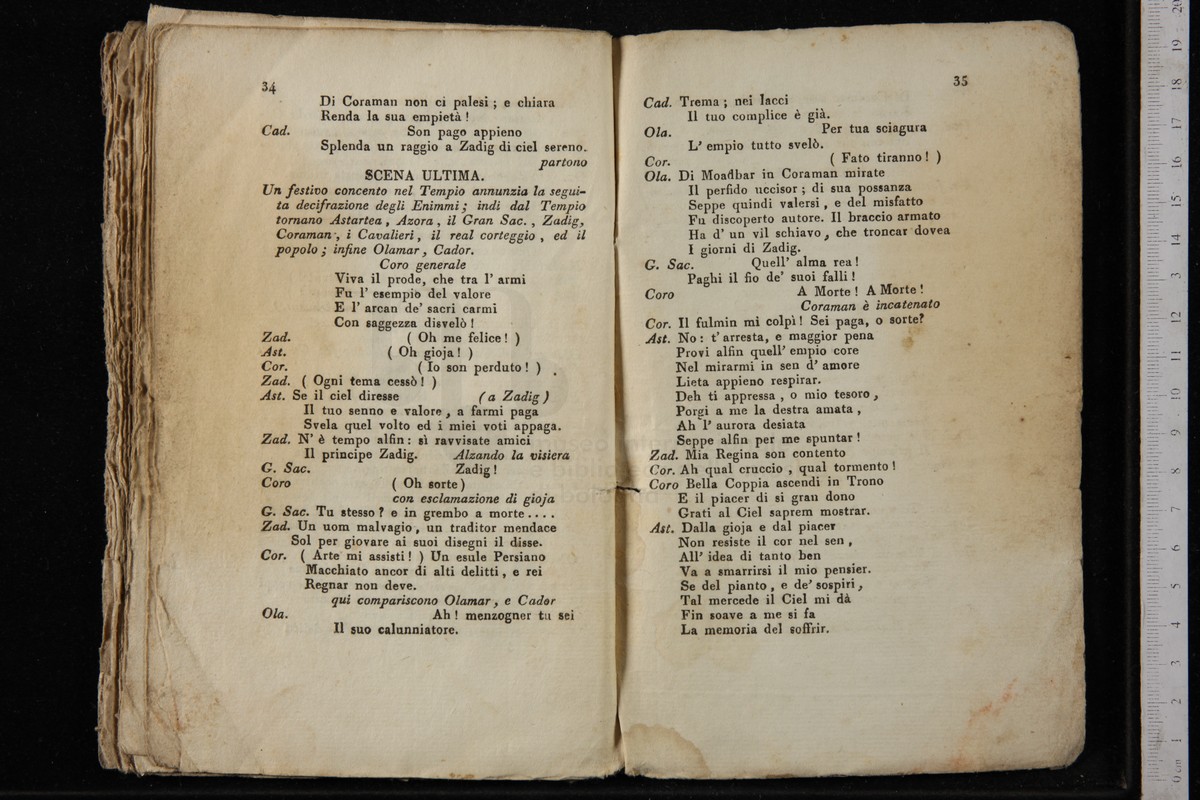 34
Di Coraman non ci palesi ; e chiara
Renda la sua empietà !
Cad. Son pago appieno
Splenda un raggio a Zadig di ciel sereno.
partono
SCENA ULTIMA.
Un festivo concento nel Tempio annunzia la segui-
ta decifrazione degli Enimmi ; indi dal Tempio
tornano Astartea , Azora , il Gran Sac. , Zadig,
Coraman , i Cavalieri , il real corteggio , ed il
popolo ; infine Olamar , Cador.
Coro generale
Viva il prode, che tra l' armi
Fu l' esempio del valore
E l' arcan de' sacri carmi
Con saggezza disvelò !
Zad. ( Oh me felice ! )
Ast. ( Oh gioja ! )
Cor. ( Io son perduto ! )
Zad. ( Ogni tema cessò ! )
Ast. Se il ciel diresse (a Zadig)
Il tuo senno e valore , a farmi paga
Svela quel volto ed i miei voti appaga.
Zad. N' è tempo alfin : sì ravvisate amici
Il principe Zadig. Alzando la visiera
G. Sac. Zadig !
Coro ( Oh sorte )
con esclamazione di gioja
G. Sac. Tu stesso ? e in grembo a morte ....
Zad. Un uom malvagio , un traditor mendace
Sol per giovare ai suoi disegni il disse.
Cor. ( Arte mi assisti ! ) Un esule Persiano
Macchiato ancor di alti delitti , e rei
Regnar non deve.
qui compariscono Olamar , e Cador
Ola. Ah ! menzogner tu sei
Il suo calunniatore.
35
Cad. Trema ; nei lacci
Il tuo complice è già.
Ola. Per tua sciagura
L' empio tutto svelò.
Cor. ( Fato tiranno ! )
Ola. Di Moadbar in Coraman mirate
Il perfido uccisor ; di sua possanza
Seppe quindi valersi , e del misfatto
Fu discoperto autore. Il braccio armato
Ha d' un vil schiavo , che troncar dovea
I giorni di Zadig.
G. Sac. Quell' alma rea !
Paghi il fio de' suoi falli !
Coro A Morte ! A Morte !
Coraman è incatenato
Cor. Il fulmin mi colpì ! Sei paga, o sorte?
Ast. No : t' arresta, e maggior pena
Provi alfin quell' empio core
Nel mirarmi in sen d' amore
Lieta appieno respirar.
Deh ti appressa , o mio tesoro ,
Porgi a me la destra amata ,
Ah l' aurora desiata
Seppe alfin per me spuntar !
Zad. Mia Regina son contento
Cor. Ah qual cruccio , qual tormento !
Coro Bella Coppia ascendi in Trono
E il piacer di si gran dono
Grati al Ciel saprem mostrar.
Ast. Dalla gioja e dal piacer
Non resiste il cor nel sen ,
All' idea di tanto ben
Va a smarrirsi il mio pensier.
Se del pianto , e de' sospiri ,
Tal mercede il Ciel mi dà
Fin soave a me si fa
La memoria del soffrir.